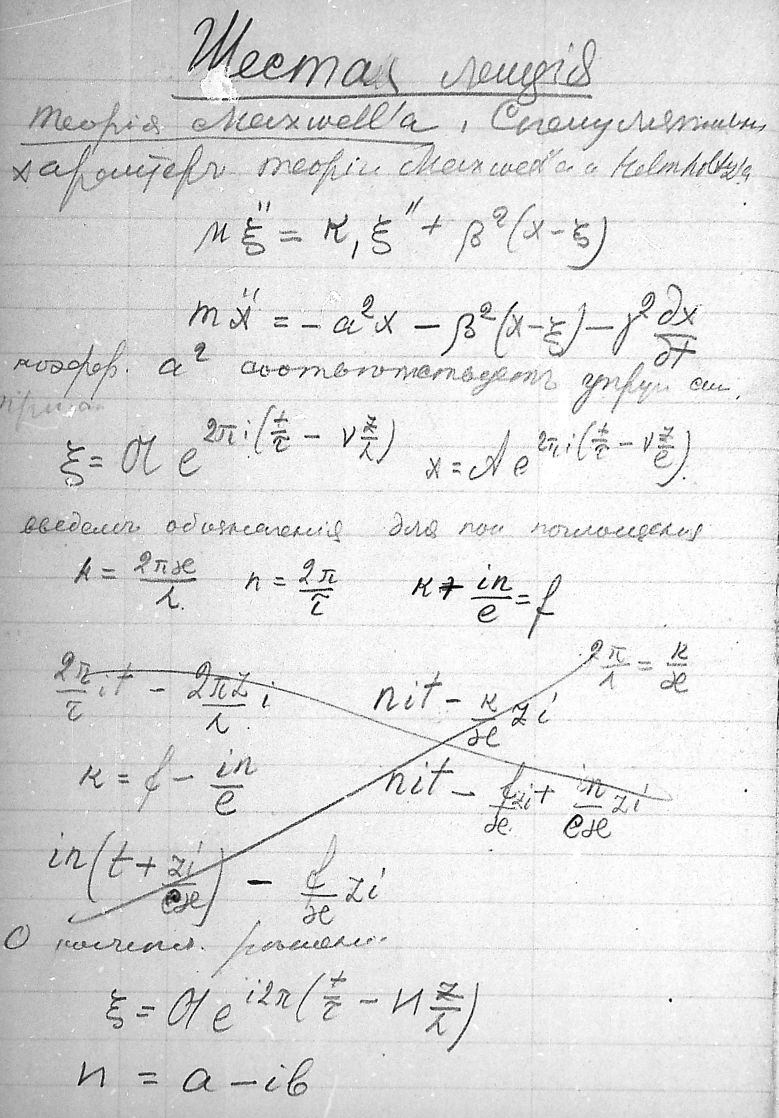 Шестая лекція
теорія Maxwell'a,
характеръ теоріи Maxwell'a и Helmholtz'a
μ ξ̈ = κ₁ ξ'' + β²(x-ξ)
m ẍ = - a²x - β²(x-ξ) - γ² ∂x/∂t
коэфф. a² соотвѣтствуетъ упруг. сил.
ξ = 𝔄 e^{2πi(t/τ - ν z/λ)} x = A e^{2πi(t/τ - ν z/e)}.
введемъ обозначенія для поглощенія
k = 2πϰ/λ n = 2π/τ κ + in/e = f
2π/λ = κ/ϰ
2π/τ it - 2πz/λ i nit - κ/ϰ zi
κ = f - in/e nit - f/ϰ zi + in/eϰ zi
in(t + zi/eϰ) - f/ϰ zi
О
ξ = 𝔄 e^{i2π(t/τ - n z/λ)}
n = a - ib